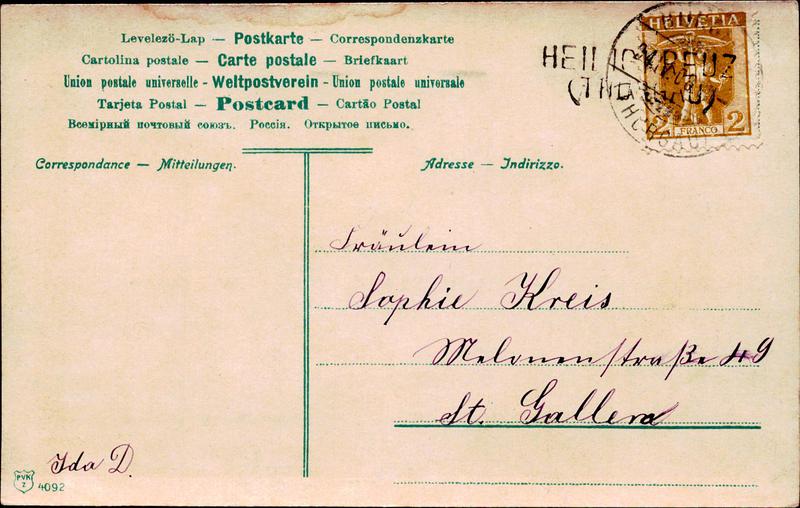 Levelezö-Lap — Postkarte — Correspondenzkarte
Cartolina postale — Carte postale — Briefkaart
Union postale universelle - Weltpostverein - Union postale universale
Tarjeta Postal — Postcard — Cartão Postal
Всемірный почтовый союзъ. Россія. Открытое письмо.
HELVETIA
FRANCO 2
Correspondance — Mitteilungen.
Adresse — Indirizzo.
Fräulein
Sophie Kreis
Melonenstraße 49
St. Gallen
Ida D.
PVK
Z
4092